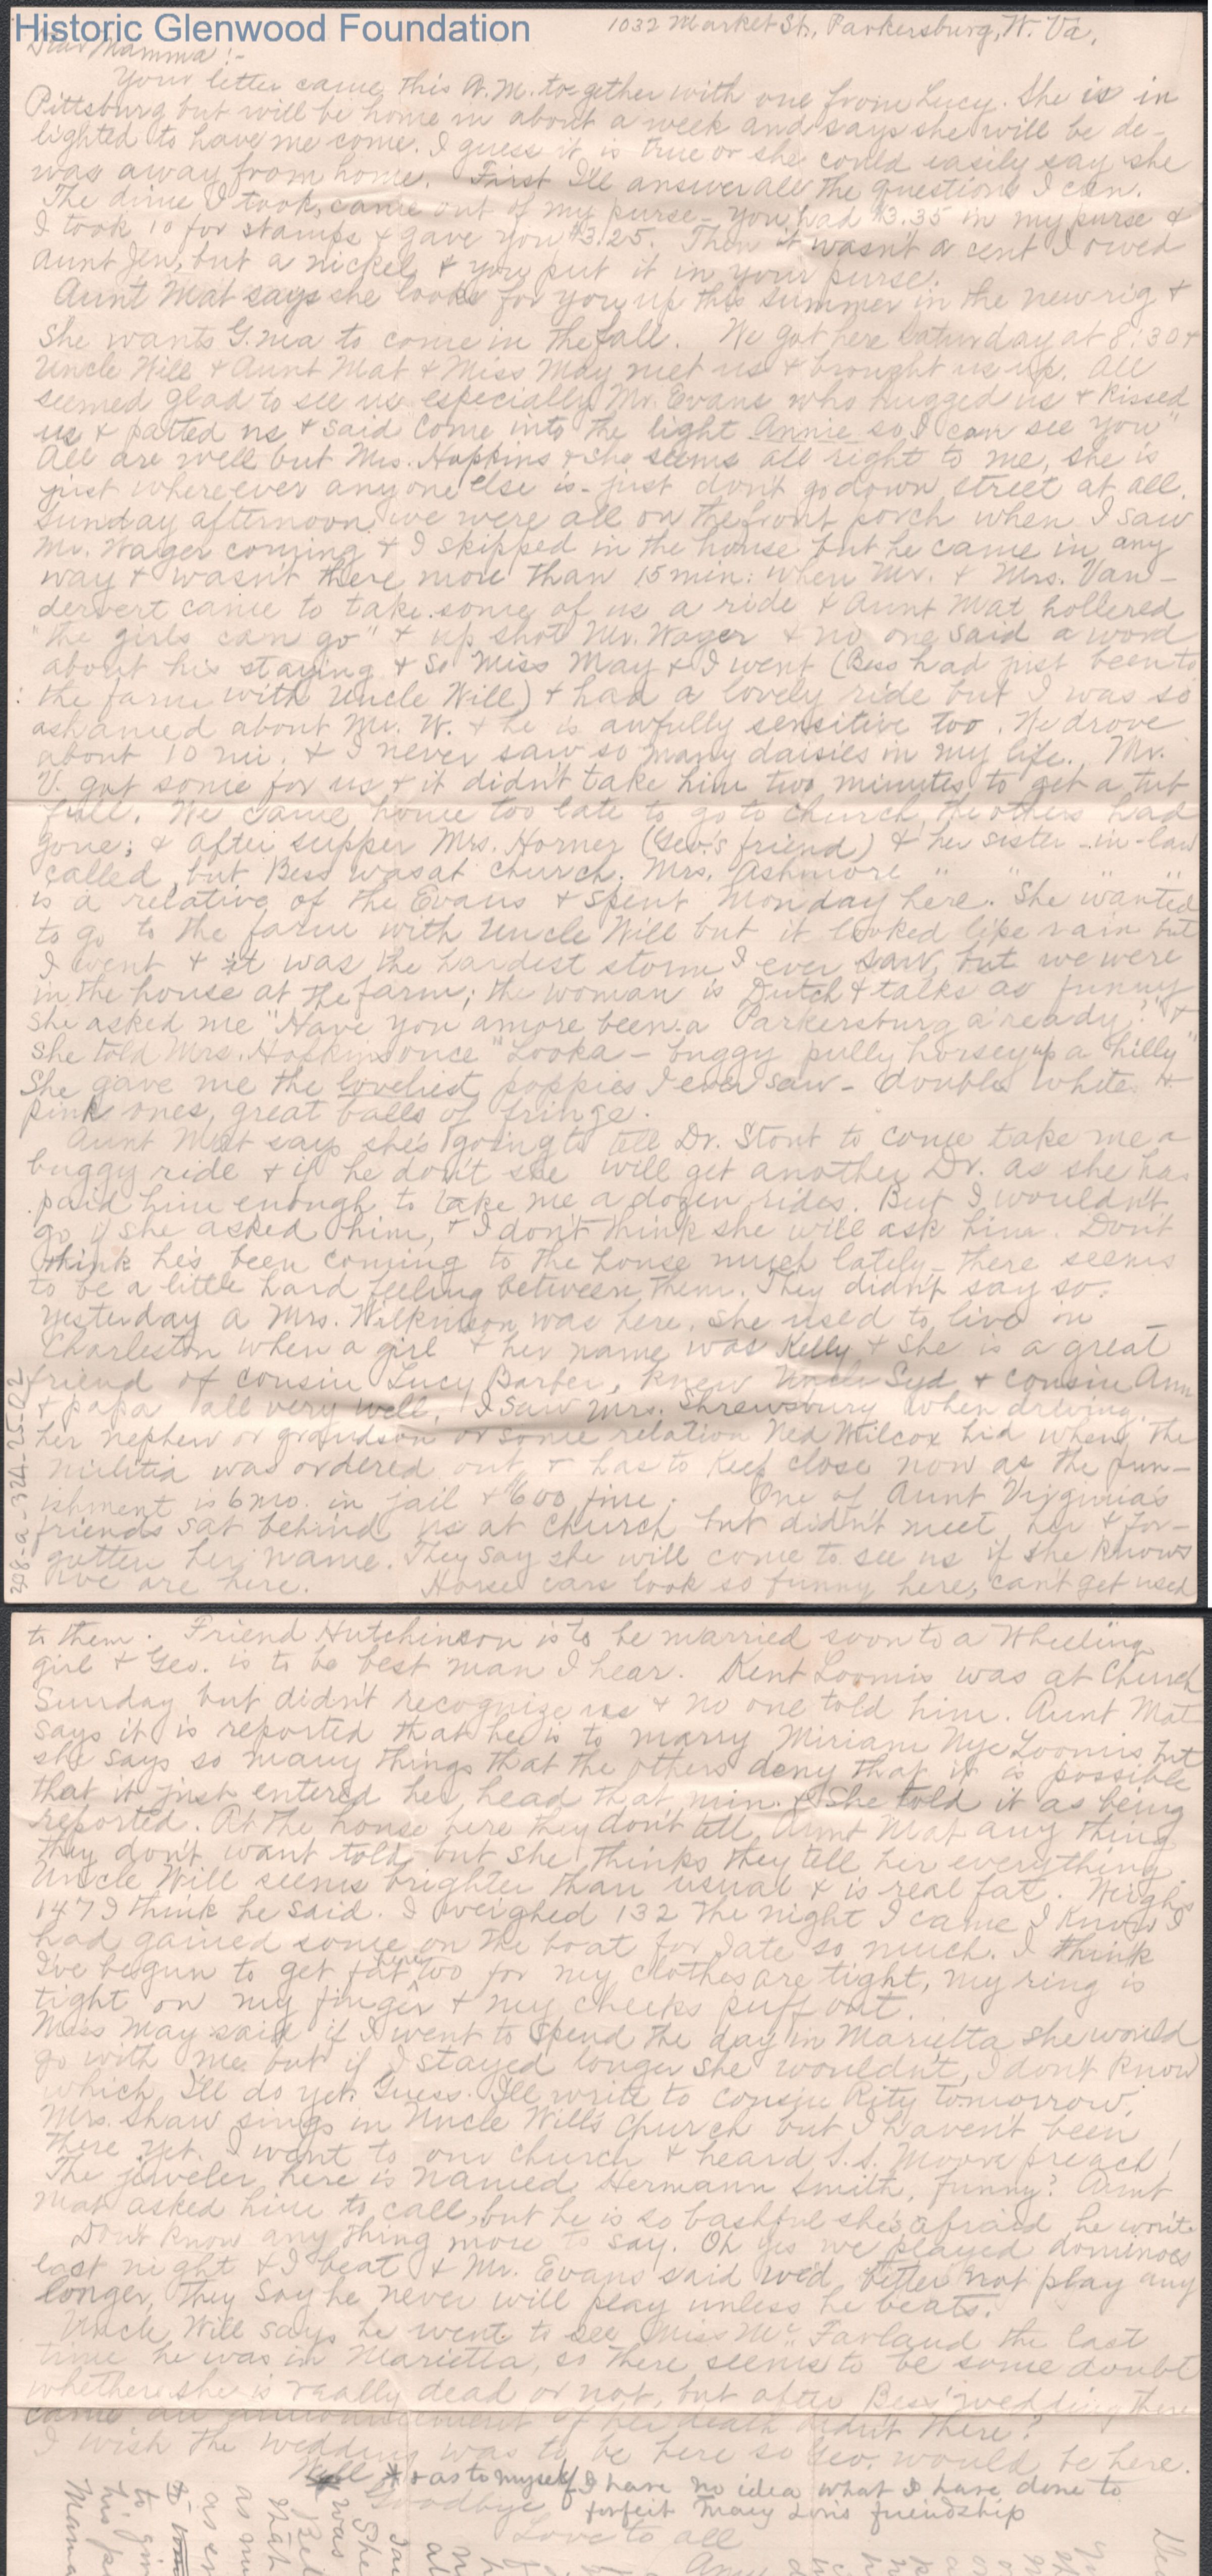 Historic Glenwood Foundation
1032 Market St., Parkersburg, W. Va.
Dear Mamma:-
Your letter came this A.M. together with one from Lucy. She is in
Pittsburg but will be home in about a week and says she will be de-
lighted to have me come. I guess it is true or she could easily say she
was away from home. First I'll answer all the questions I can.
The dime I took, came out of my purse - you had $3.35 in my purse &
I took 10 for stamps & gave you $3.25. Then it wasn't a cent I owed
Aunt Jen, but a nickel & you put it in your purse.
Aunt Mat says she looks for you up this summer in the new rig &
she wants G.ma to come in the fall. We got here Saturday at 8:30 &
Uncle Will & Aunt Mat & Miss May met us & brought us up. All
seemed glad to see us especially Mr. Evans who hugged us & kissed
us & patted us & said "Come into the light Annie so I can see you"
All are well but Mrs. Hopkins & she seems all right to me, she is
just whereever anyone else is - just don't go down street at all.
Sunday afternoon we were all on the front porch when I saw
Mr. Wager coming & I skipped in the house but he came in any
way & wasn't there more than 15 min. when Mr. & Mrs. Van-
dervert came to take some of us a ride & Aunt Mat hollered
"the girls can go" & up shot Mr. Wager & no one said a word
about his staying & so Miss May & I went (Bess had just been to
the farm with Uncle Will) & had a lovely ride but I was so
ashamed about Mr. W. & he is awfully sensitive too. We drove
about 10 mi. & I never saw so many daisies in my life. Mr.
V. got some for us & it didn't take him two minutes to get a tub
full. We came home too late to go to church, the others had
gone; & after supper Mrs. Horner (Geo.'s friend) & her sister-in-law
called, but Bess was at church. Mrs. Ashmore " " "
is a relative of the Evans & spent Monday here. She wanted
to go to the farm with Uncle Will but it looked like rain but
I went & it was the hardest storm I ever saw, but we were
in the house at the farm; the woman is Dutch & talks so funny
she asked me "Have you amore been a Parkersburg a'ready?" &
she told Mrs. Hopkins once "Looka - buggy pully horsey up a hilly"
She gave me the loveliest poppies I ever saw - double white &
pink ones, great balls of fringe.
Aunt Mat says she's going to tell Dr. Stout to come take me a
buggy ride & if he don't she will get another Dr. as she has
paid him enough to take me a dozen rides. But I wouldn't
go if she asked him, & I don't think she will ask him. Don't
think he's been coming to the house much lately - there seems
to be a little hard feeling between them. They didn't say so.
Yesterday a Mrs. Wilkinson was here. She used to live in
Charleston when a girl & her name was Kelly & she is a great
friend of cousin Lucy Barber, knew Uncle Syd & cousin Ann
& papa all very well. I saw Mrs. Shrewsbury when driving,
her nephew or grandson or some relation Ned Wilcox hid when the
militia was ordered out & has to keep close now as the pun-
ishment is 6 mo. in jail & $600 fine. One of Aunt Virginia's
friends sat behind us at church but didn't meet her & for-
gotten her name. They say she will come to see us if she knows
we are here. Horse cars look so funny here, can't get used
to them. Friend Hutchinson is to be married soon to a Wheeling
girl & Geo. is to be best man I hear. Kent Loomis was at church
Sunday but didn't recognize us & no one told him. Aunt Mat
says it is reported that he is to marry Miriam Nye Loomis but
she says so many things that the others deny that it is possible
that it just entered her head that min. & she told it as being
reported. At the house here they don't tell Aunt Mat any thing
they don't want told, but she thinks they tell her everything
Uncle Will seems brighter than usual & is real fat. Weighs
147 I think he said. I weighed 132 the night I came I know I
had gained some on the boat for I ate so much. I think
I've begun to get fat too for my clothes are tight, my ring is
tight on my finger & my cheeks puff out.
Miss May said if I went to spend the day in Marietta she would
go with me but if I stayed longer she wouldn't, I don't know
which I'll do yet. Guess I'll write to cousin Kity tomorrow.
Mrs. Shaw sings in Uncle Will's church but I haven't been
there yet. I went to our church & heard S.S. Moore preach!
The jeweler here is named Hermann Smith, funny? Aunt
Mat asked him to call, but he is so bashful she's afraid he won't.
Don't know any thing more to say. Oh yes we played dominoes
last night & I beat & Mr. Evans said we'd better not play any
longer, they say he never will play unless he beats.
Uncle Will says he went to see Miss McFarland the last
time he was in Marietta, so there seems to be some doubt
whether she is really dead or not, but after Bess' wedding there
came an announcement of her death didn't there?
I wish the wedding was to be here so Geo. would be here.
Well * as to myself I have no idea what I have done to
forfeit Mary Lou's friendship
Goodbye
Love to all
208-a-324-25-02